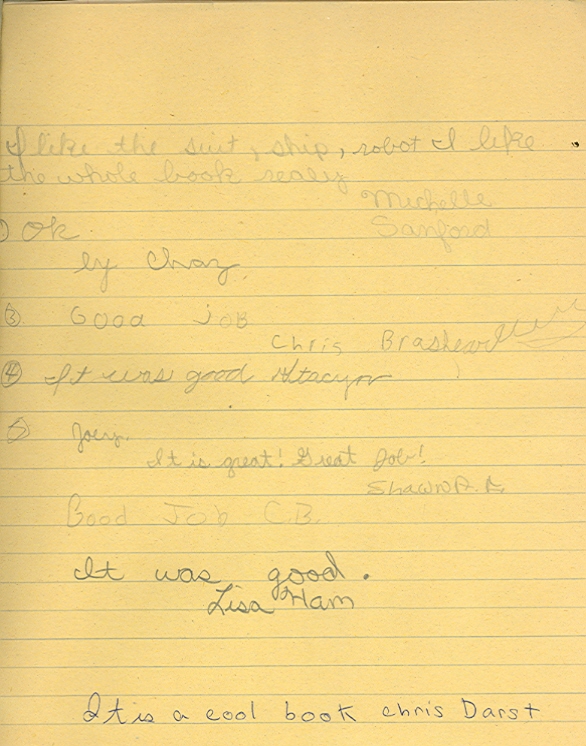 I like the suit, ship, robot I like
the whole book really
Michelle
Sanford
) Ok
by Chaz.
③ Good Job
Chris
④ It was good
5 Joey.
It is great! Great Job!
Shawn
Good Job C.B.
It was good.
Lisa Ham
It is a cool book chris Darst